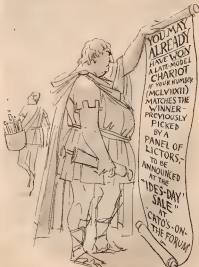 YOU MAY
ALREADY
HAVE WON
A LATE-MODEL
CHARIOT
IF YOUR NUMBER
(MCLVIIXII)
MATCHES THE
WINNER—
PREVIOUSLY
PICKED
BY A
PANEL OF
LICTORS,—
TO BE
ANNOUNCED
AT THE
"IDES-DAY
SALE"
AT
CATO'S-ON-
THE FORUM.